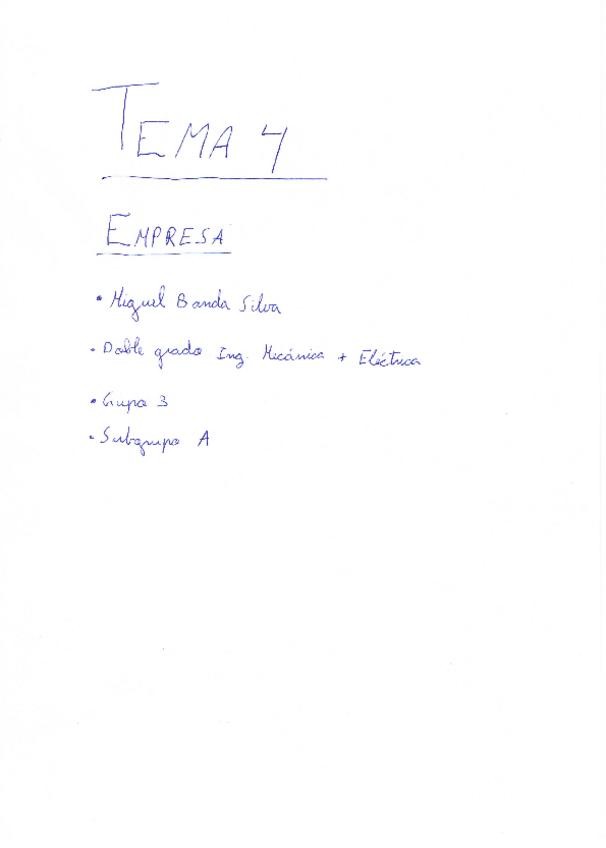 TEMA 4
EMPRESA
• Miguel Banda Silva
• Doble grado Ing. Mecánica + Eléctrica
• Grupo 3
• Subgrupo A